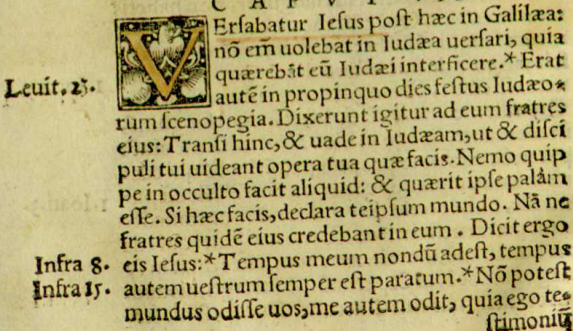 CAPVT
VErsabatur Iesus post hæc in Galilæa:
nõ em̃ uolebat in Iudæa uersari, quia
quærebãt eũ Iudæi interficere.* Erat
Leuit. 23.
autẽ in propinquo dies festus Iudæo-
rum scenopegia. Dixerunt igitur ad eum fratres
eius: Transi hinc, & uade in Iudæam, ut & disci
puli tui uideant opera tua quæ facis. Nemo quip
pe in occulto facit aliquid: & quærit ipse palàm
esse. Si hæc facis, declara teipsum mundo. Nã ne
fratres quidẽ eius credebant in eum. Dicit ergo
Infra 8.
eis Iesus:* Tempus meum nondũ adest, tempus
Infra 15.
autem uestrum semper est paratum.* Nõ potest
mundus odisse uos, me autem odit, quia ego te-
stimoniũ